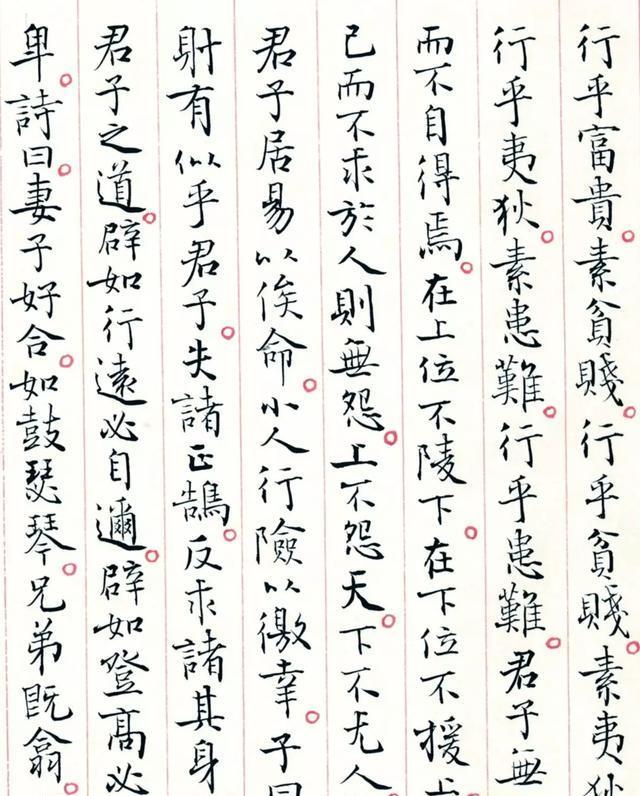 行乎富貴。素貧賤。行乎貧賤。素夷狄
行乎夷狄。素患難。行乎患難。君子無
而不自得焉。在上位不陵下。在下位不援上
己而不求於人則無怨。上不怨天。下不尤人。
君子居易以俟命。小人行險以徼幸。子曰
射有似乎君子。失諸正鵠。反求諸其身
君子之道。辟如行遠必自邇。辟如登高必
卑。詩曰。妻子好合。如鼓瑟琴。兄弟既翕。